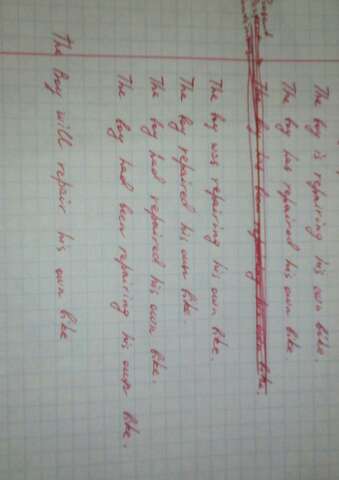 The boy is repairing his own bike.
The boy has repaired his own bike.
The boy has been repairing his own bike.
The boy was repairing his own bike.
The boy repaired his own bike.
The boy had repaired his own bike.
The boy had been repairing his own bike.
The Boy will repair his own bike